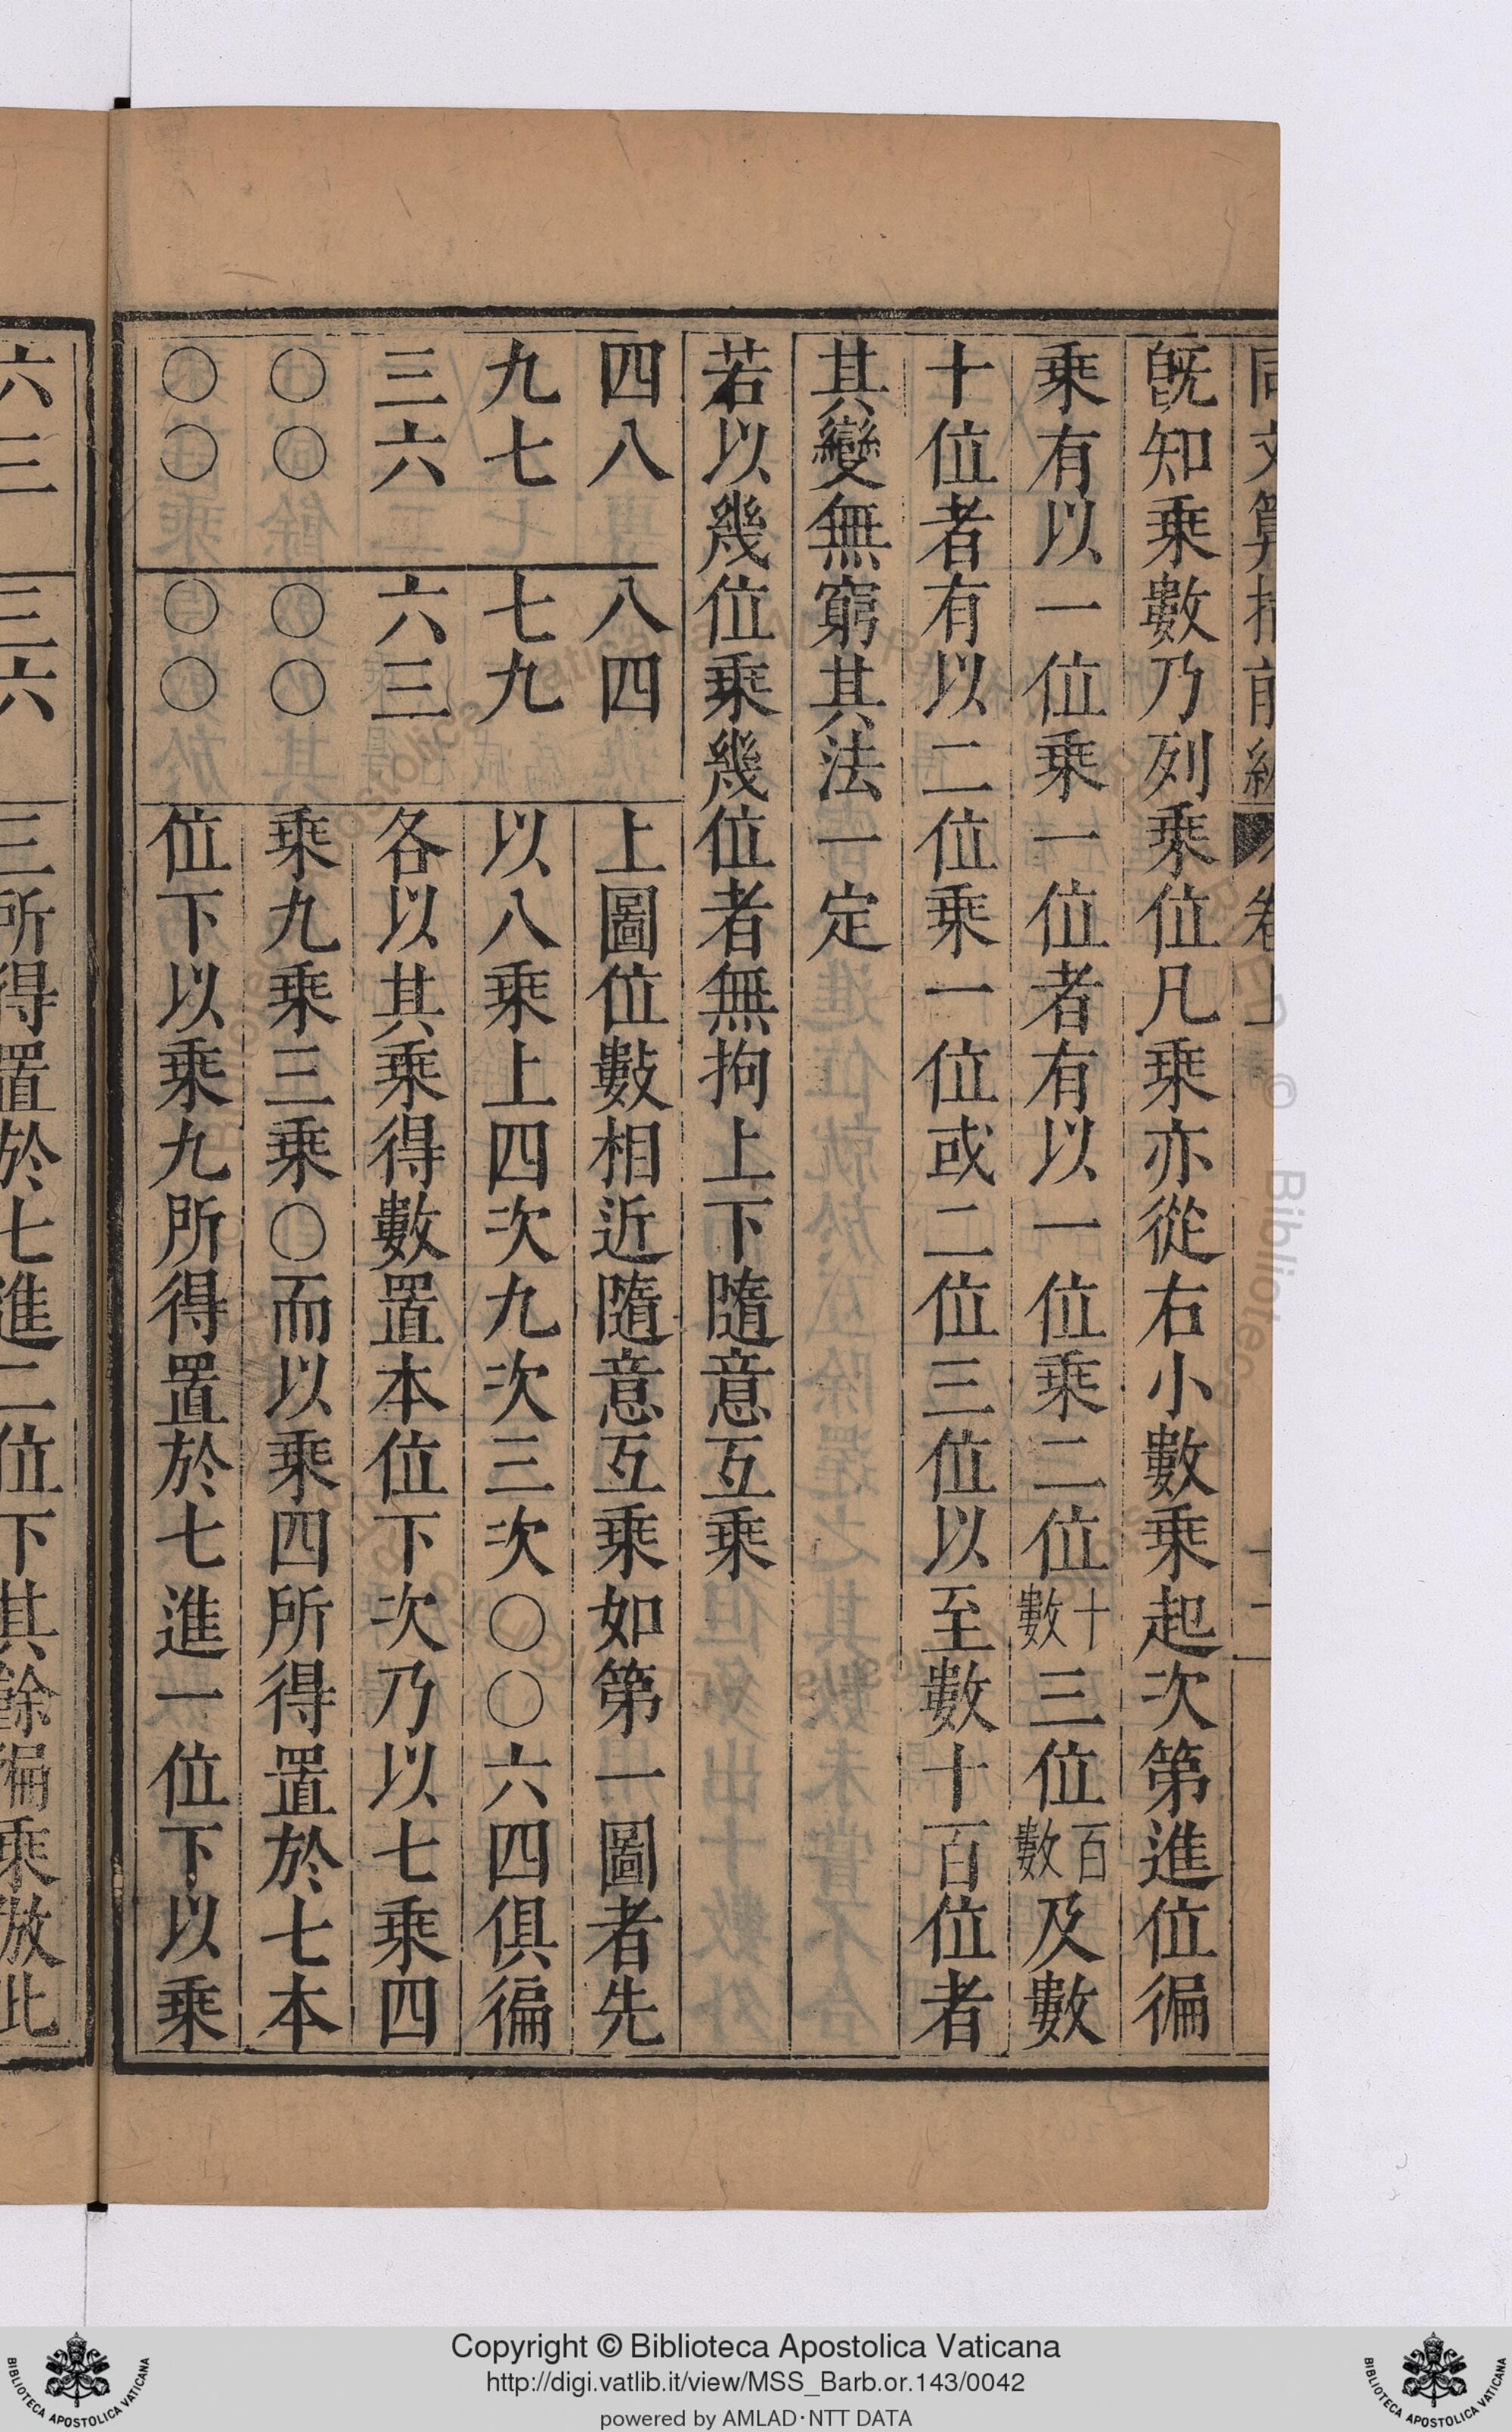 同文算指前編 卷上 十二
旣知乘數乃列乘位凡乘亦從右小數乘起次第進位徧
乘有以一位乘一位者有以一位乘二位十數三位百數及數
十位者有以二位乘一位或二位三位以至數十百位者
其變無窮其法一定
若以幾位乘幾位者無拘上下隨意互乘
四八 八四 上圖位數相近隨意互乘如第一圖者先
九七 七九 以八乘上四次九次三次〇〇六四俱徧
三六 六三 各以其乘得數置本位下次乃以七乘四
〇〇 〇〇 乘九乘三乘〇而以乘四所得置於七本
〇〇 〇〇 位下以乘九所得置於七進一位下以乘
六三 三六 三所得置於七進二位下其餘徧乘放此
Copyright © Biblioteca Apostolica Vaticana
http://digi.vatlib.it/view/MSS_Barb.or.143/0042
powered by AMLAD·NTT DATA
BIBLIOTECA APOSTOLICA VATICANA
BIBLIOTECA APOSTOLICA VATICANA